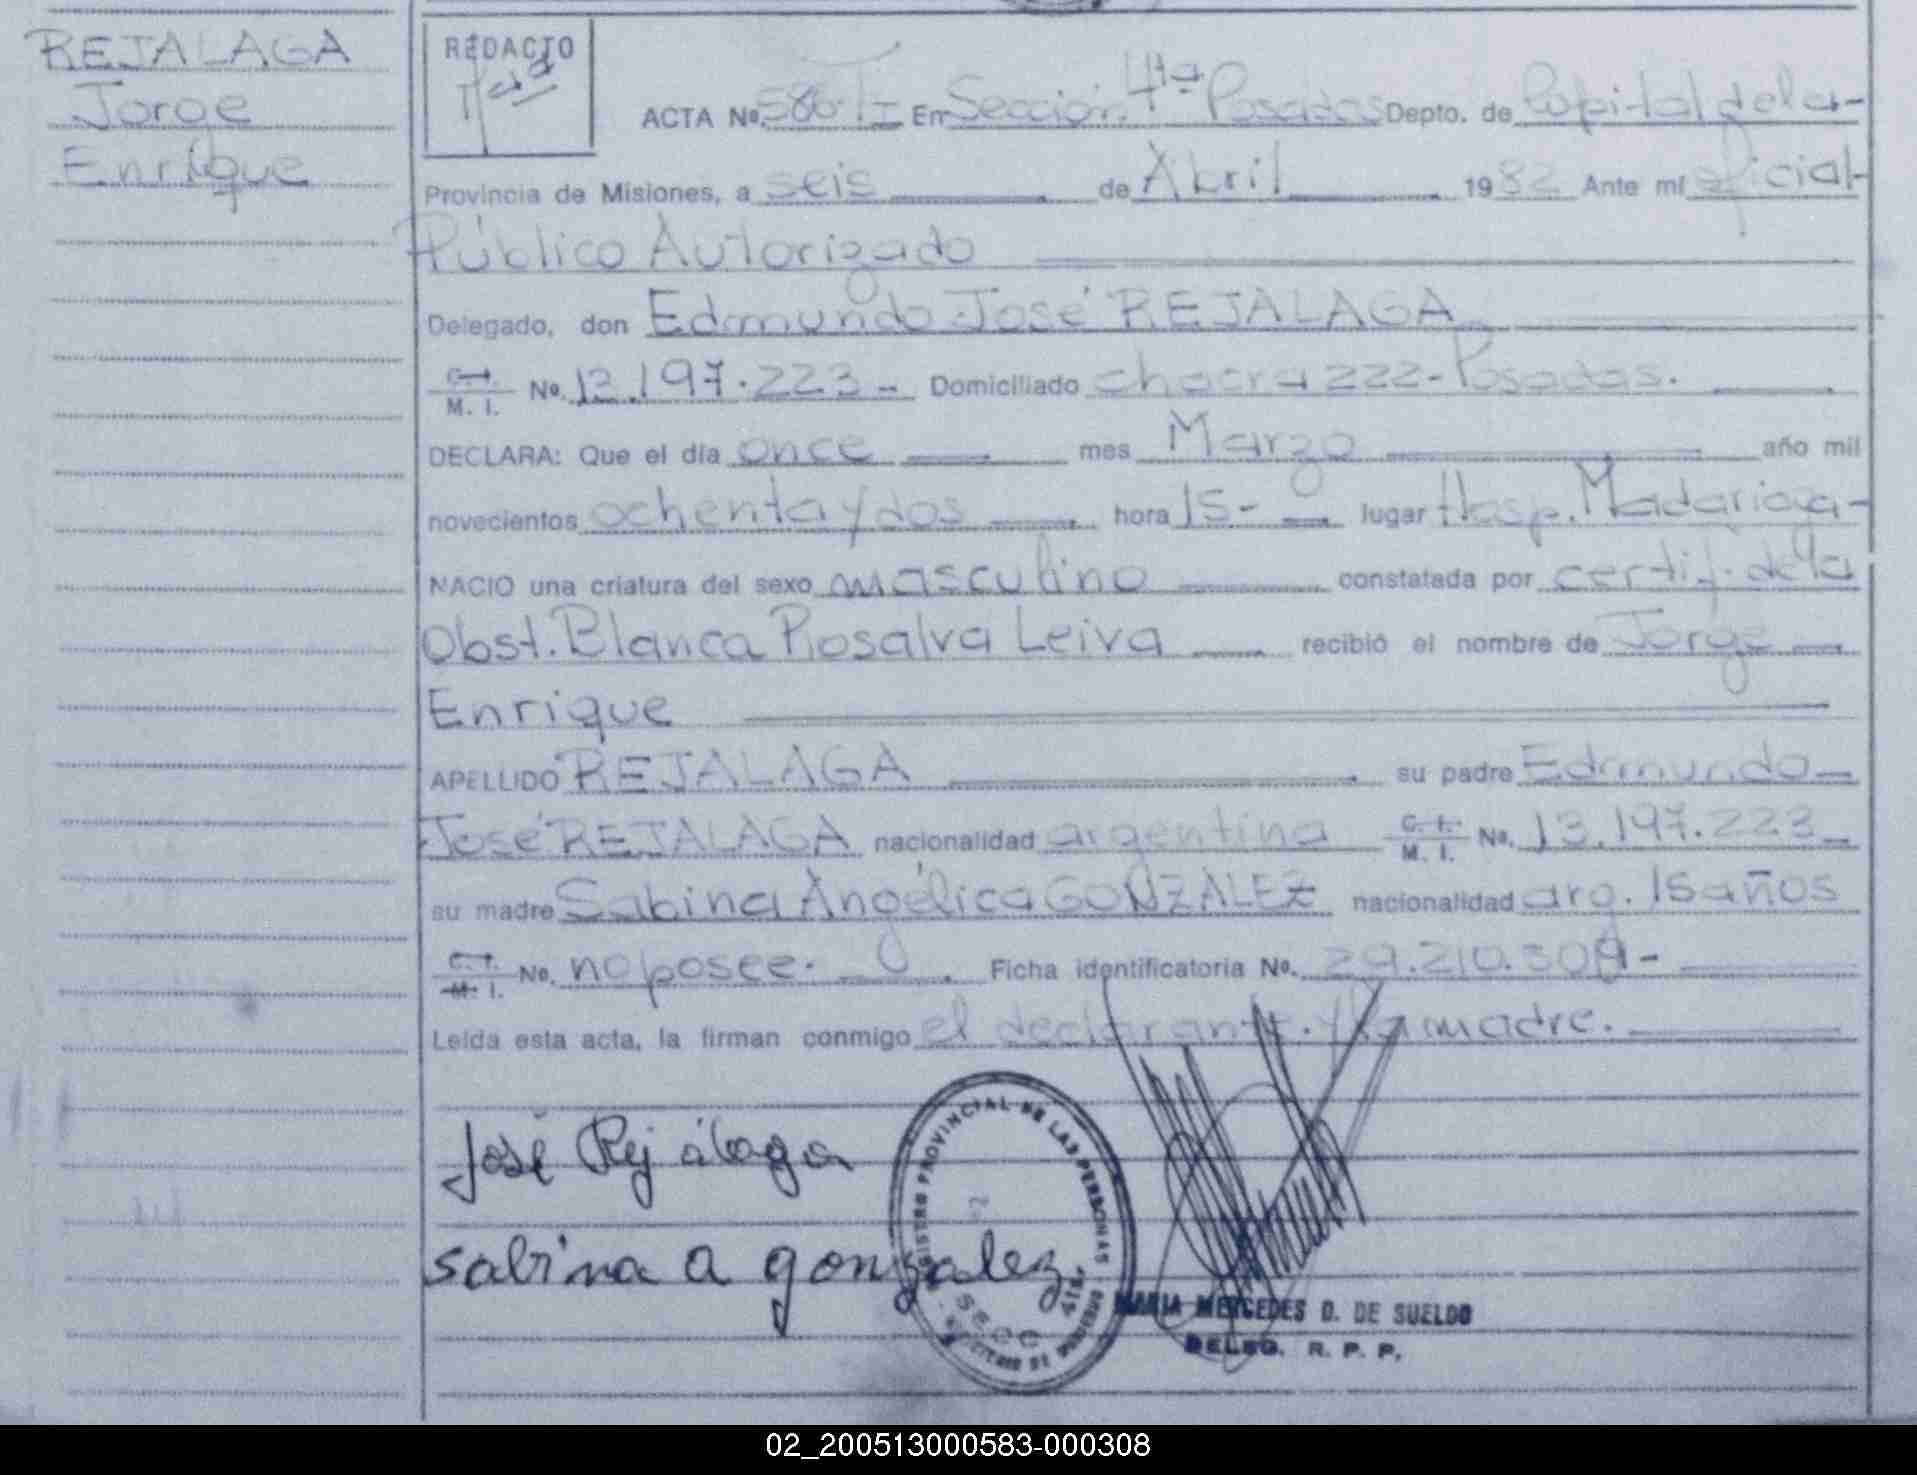 REJALAGA
Jorge
Enrique
REDACTO
ACTA No. 586 T I En Sección 4ta Posadas Depto. de Capital de la-
Provincia de Misiones, a seis de Abril 1982 Ante mí oficial-
Público Autorizado
Delegado, don Edmundo José REJALAGA
C. I.
M. I. No. 13.197.223 - Domiciliado chacra 222 - Posadas.
DECLARA: Que el día once mes Marzo año mil
novecientos ochenta y dos hora 15- lugar Hosp. Madariaga-
NACIO una criatura del sexo masculino constatada por certif. de la
Obst. Blanca Rosalva Leiva recibió el nombre de Jorge
Enrique
APELLIDO REJALAGA su padre Edmundo
José REJALAGA nacionalidad argentina C. I.
M. I. No. 13.197.223
su madre Sabina Angélica GONZALEZ nacionalidad arg. 15 años
C. I.
M. I. No. no posee. Ficha identificatoria No. 29.210.309-
Leída esta acta, la firman conmigo el declarante. y la madre.
José Rejálaga
sabina a gonzalez
REGISTRO PROVINCIAL DE LAS PERSONAS
SECC 4ta.
MARIA MERCEDES D. DE SUELDO
DELEG. R. P. P.
02_200513000583-000308